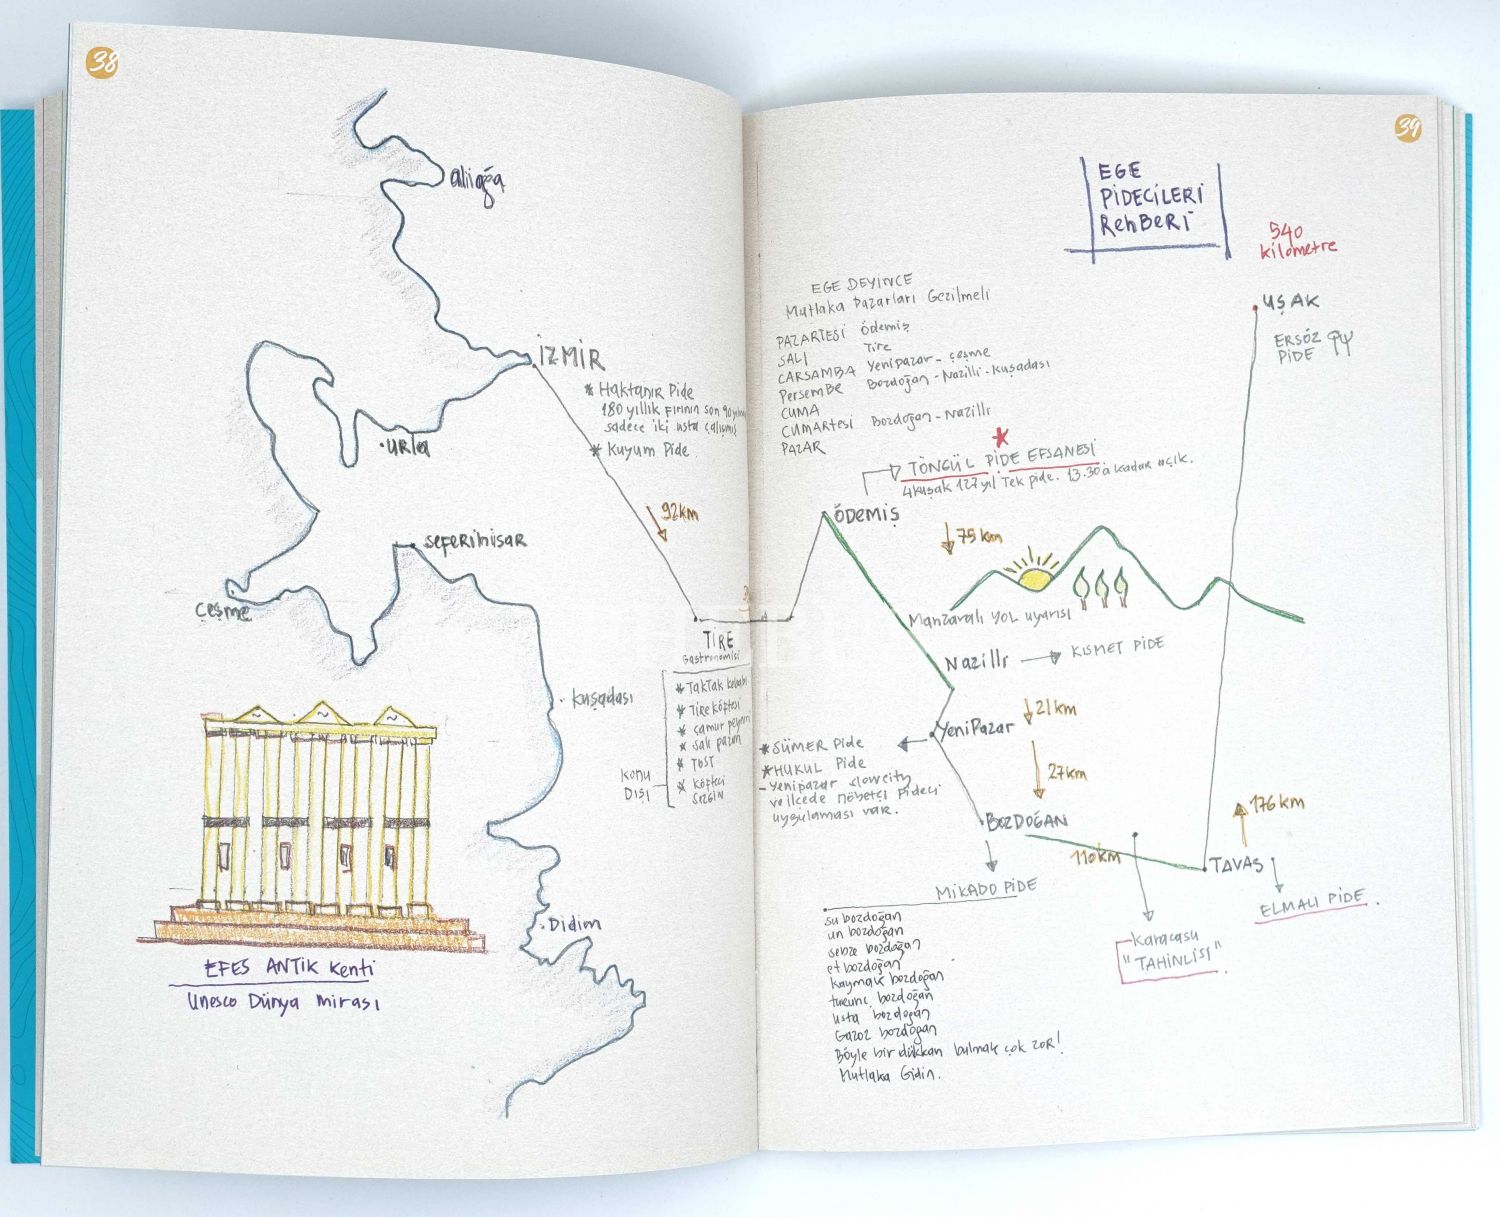 38
aliağa
İZMİR
* Haktanır Pide
180 yıllık fırının son 90 yılını
sadece iki usta çalışmış
* Kuyum Pide
urla
92 km
seferihisar
çeşme
kuşadası
TİRE
Gastronomisi
* TakTak kebabı
* Tire köftesi
* çamur peyniri
* Salı pazarı
* TOST
* Köfteci
SEZGİN
KONU
DIŞI
Didim
EFES ANTİK Kenti
Unesco Dünya mirası
39
EGE
PİDECİLERİ
RehBERİ
540
kilometre
UŞAK
ERSÖZ
PİDE
EGE DEYİNCE
Mutlaka Pazarları Gezilmeli
PAZARTESİ Ödemiş
SALI Tire
ÇARŞAMBA Yenipazar - Çeşme
Perşembe Bozdoğan - Nazilli - Kuşadası
CUMA
CUMARTESİ Bozdoğan - Nazilli
PAZAR
TÖNGÜL PİDE EFSANESİ
4 kuşak 127 yıl Tek pide. 13.30 a kadar açık.
ÖDEMİŞ
75 km
Manzaralı YOL uyarısı
Nazilli
KISMET PİDE
21 km
YeniPazar
* SÜMER Pide
* HUKUL Pide
- Yenipazar slowcity
ve ilçede Nöbetçi Pideci
uygulaması var.
27 km
BOZDOĞAN
176 km
110 km
TAVAS
MİKADO PİDE
ELMALI PİDE.
Karacasu
"TAHİNLİSİ"
su bozdoğan
un bozdoğan
sebze bozdoğan
et bozdoğan
kaymak bozdoğan
turunç bozdoğan
usta bozdoğan
Gazoz bozdoğan
Böyle bir dükkan bulmak çok zor!
Mutlaka Gidin.